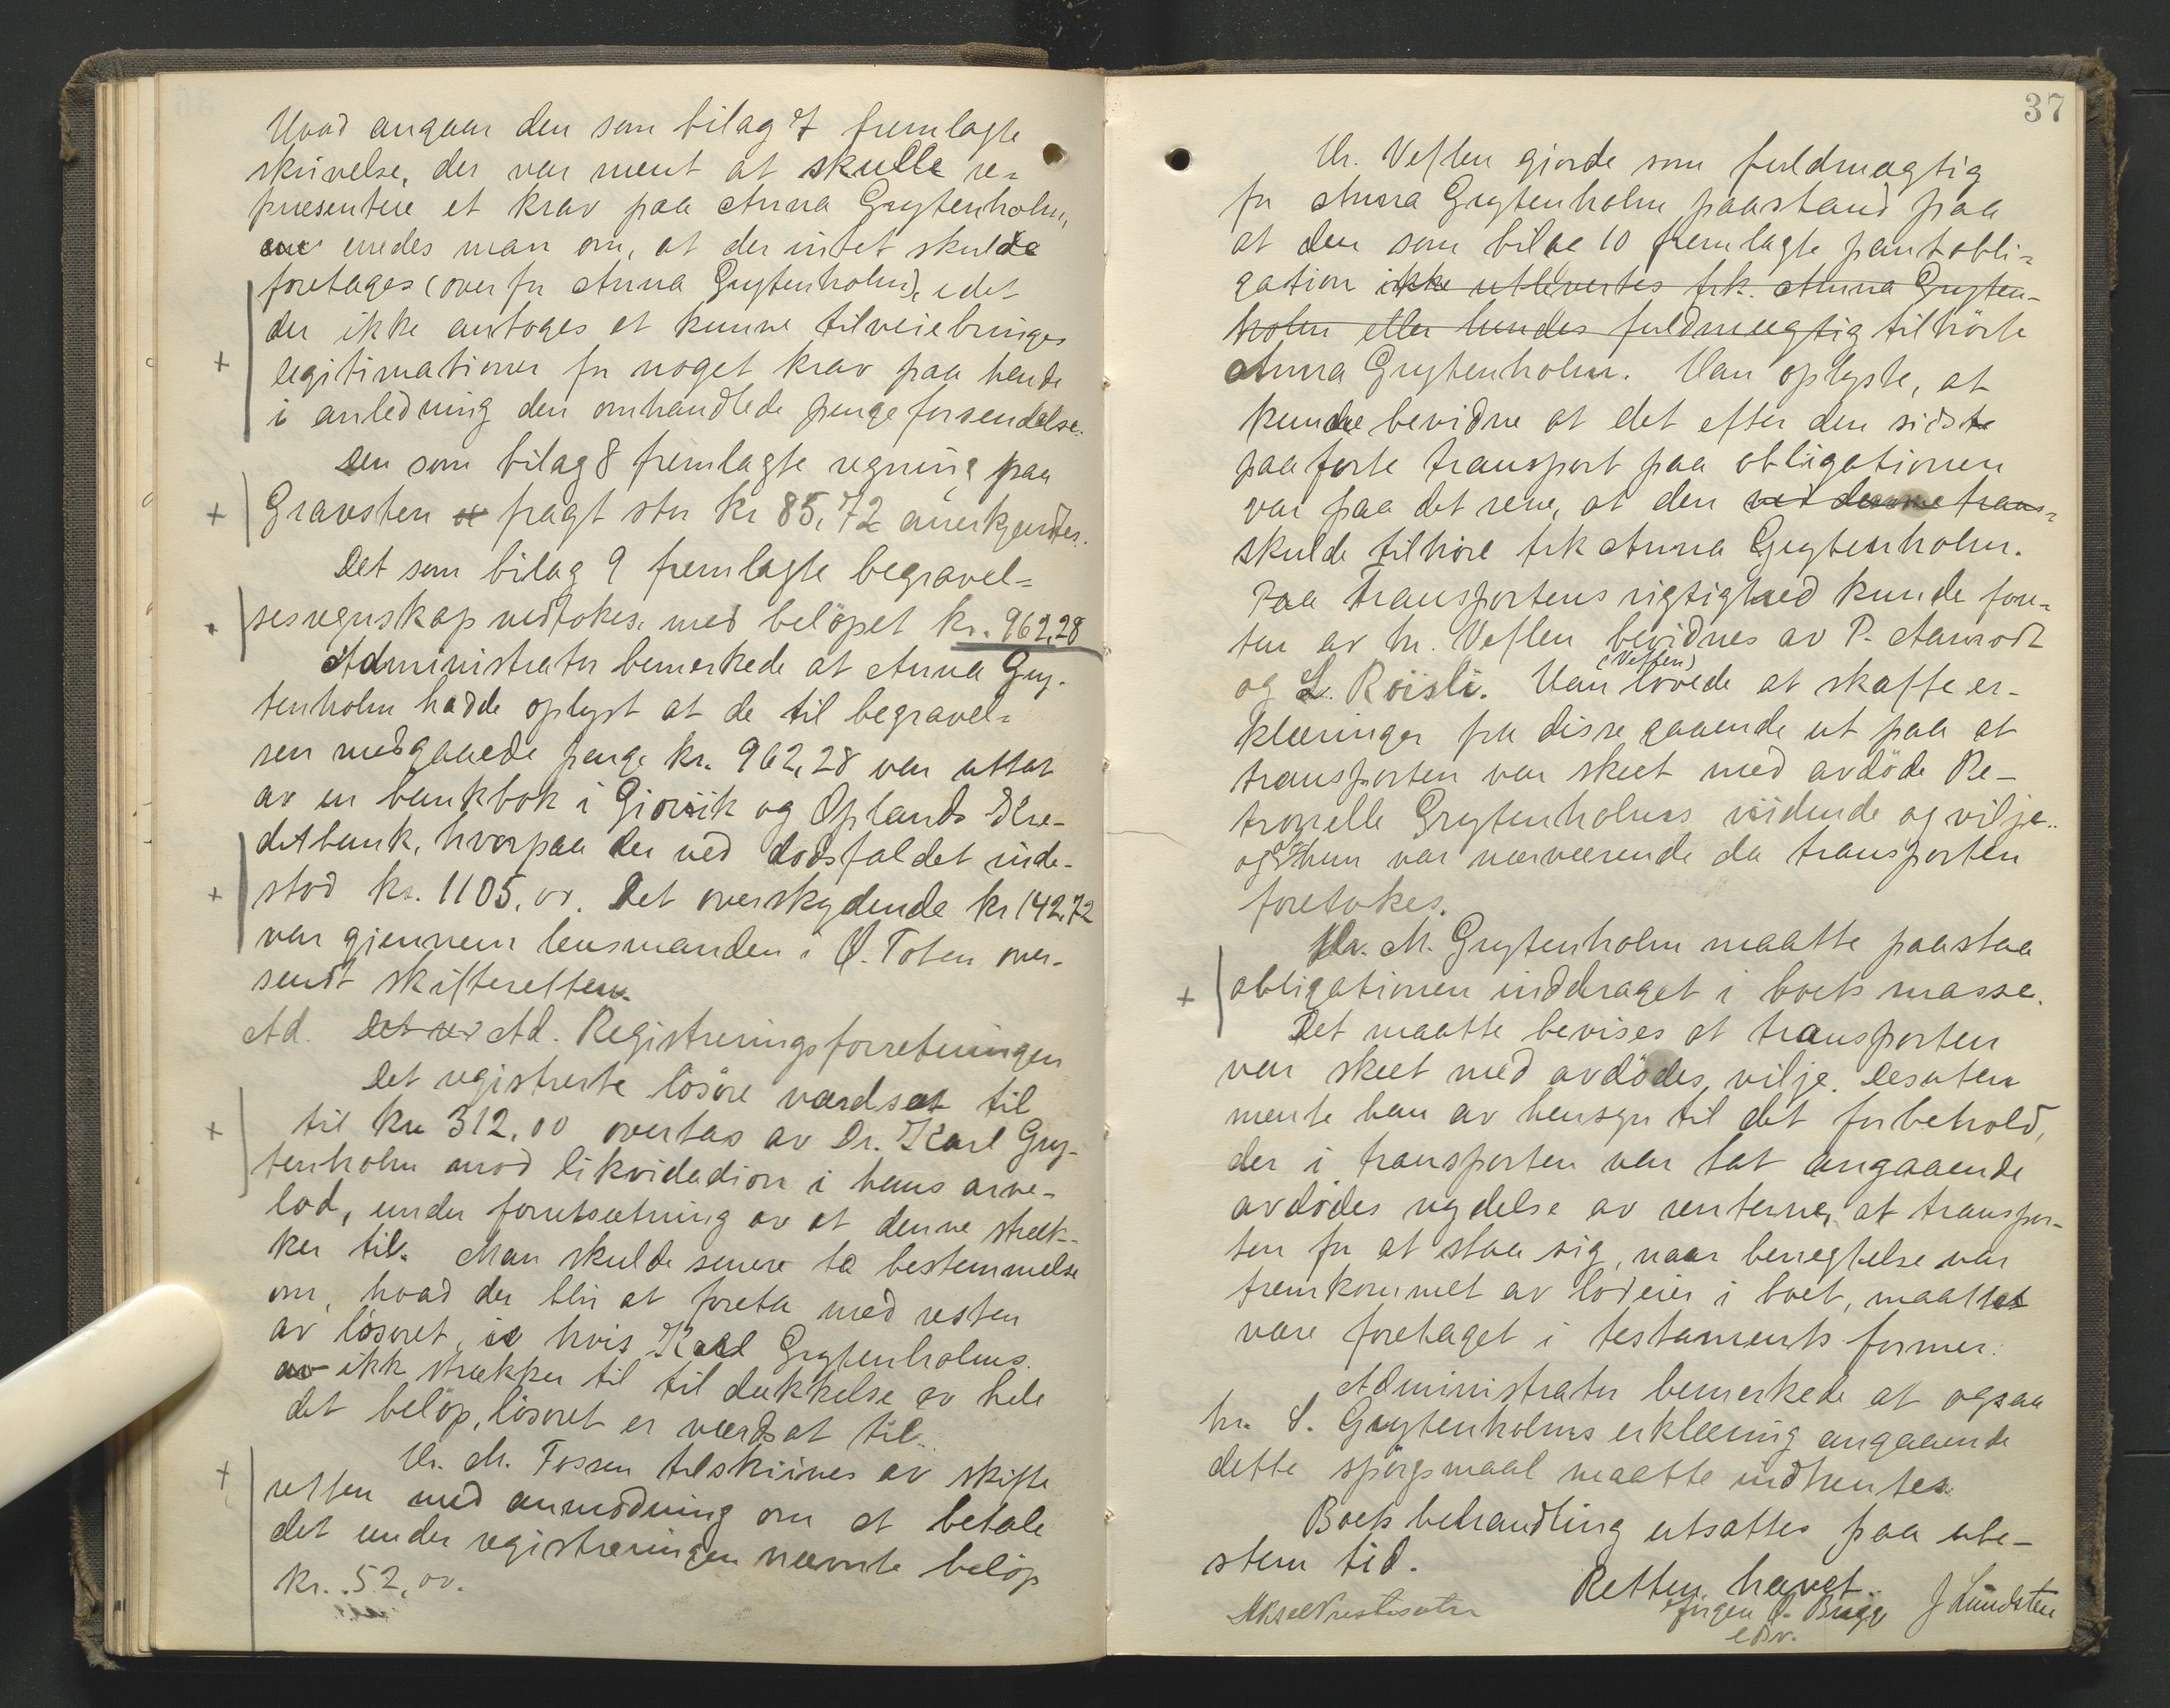 Hvad angaar den som bilag 7 fremlagte
skrivelse, der var ment at skulle re=
præsentere et krav paa Anna Grytenholm,
enedes man om, at der intet skulde
foretages (overfor Anna Grytenholm), idet
der ikke antoges at kunne tilveiebringes
legitimationer for noget krav paa hende
i anledning den omhandlede pengeforsendelse.
Den som bilag 8 fremlagte regning paa
Gravsten og fragt stor kr 85,72 anerkjendtes.
Det som bilag 9 fremlagte begravel=
sesregnskap vedtokes, med beløpet kr. 962,28
Administrator bemerkede at Anna Gry-
tenholm hadde oplyst at de til begravel=
sen medgaaede penge kr. 962,28 var uttat
av en bankbok i Gjøvik og Oplands Kre-
ditbank, hvorpaa der ved dødsfaldet inde-
stod kr. 1105,00. Det overskydende kr 142,72
var gjennem lensmanden i Ø. Toten over-
sendt skifteretten.
Ad. Det ver Ad. Registreringsforretningen
Det registrerte løsøre værdsat til
til kr 312,00 overtas av Dr. Karl Gry-
tenholm mod likvidadion i hans arve-
lod, under forutsætning av at denne stræk-
ker til. Man skulde senere ta bestemmelse
om, hvad der blir at foreta med resten
av løsøret, hvis Karl Grytenholms
ikk strækker til til dækkelse av hele
det beløp, løsøret er værdsat til.
Hr. M. Fossen tilskrives av skifte
retten med anmodning om at betale
det under registreringen nævnte beløp
kr. 52,00.
37
Hr. Veflen gjorde som fuldmægtig
for Anna Grytenholm paastand paa
at den som bilag 10 fremlagte pantobli=
gation ikke utlevertes frk. Anna Gryten-
holm eller hendes fuldmægtig tilhørte
Anna Grytenholm. Han oplyste, at
kunde bevidne at det efter den sidste
paaførte transport paa obligationen
var paa det rene, at den ved denne trans=
skulde tilhøre frk Anna Grytenholm.
Paa Transportens rigtighed kunde foru-
ten av hr. Veflen bevidnes av P. Aamodt
og L. Røisli. Han (Veflen) lovede at skaffe er-
klæringer fra disse gaaende ut paa at
transporten var skeet med avdøde Pe-
tronelle Grytenholms vidende og vilje.
og at hun var nærværende da transporten
foretokes.
Hr. M. Grytenholm maatte paastaa
obligationen inddraget i boets masse.
Det maatte bevises at transporten
var skeet med avdødes vilje. Desuten
mente han av hensyn til det forbehold,
der i transporten var tat angaaende
avdødes nydelse av renterne, at transpor-
ten for at staa sig, naar benegtelse var
fremkommet av lodeier i boet, maatte
være foretaget i testaments former.
Administrator bemerkede at ogsaa
hr. S. Grytenholms erklæring angaaende
dette spørgsmaal maatte indhentes.
Boets behandling utsattes paa ube-
stem tid.
Retten hævet.
Aksel Prestesæter Jørgen O. Brige J Lundsten